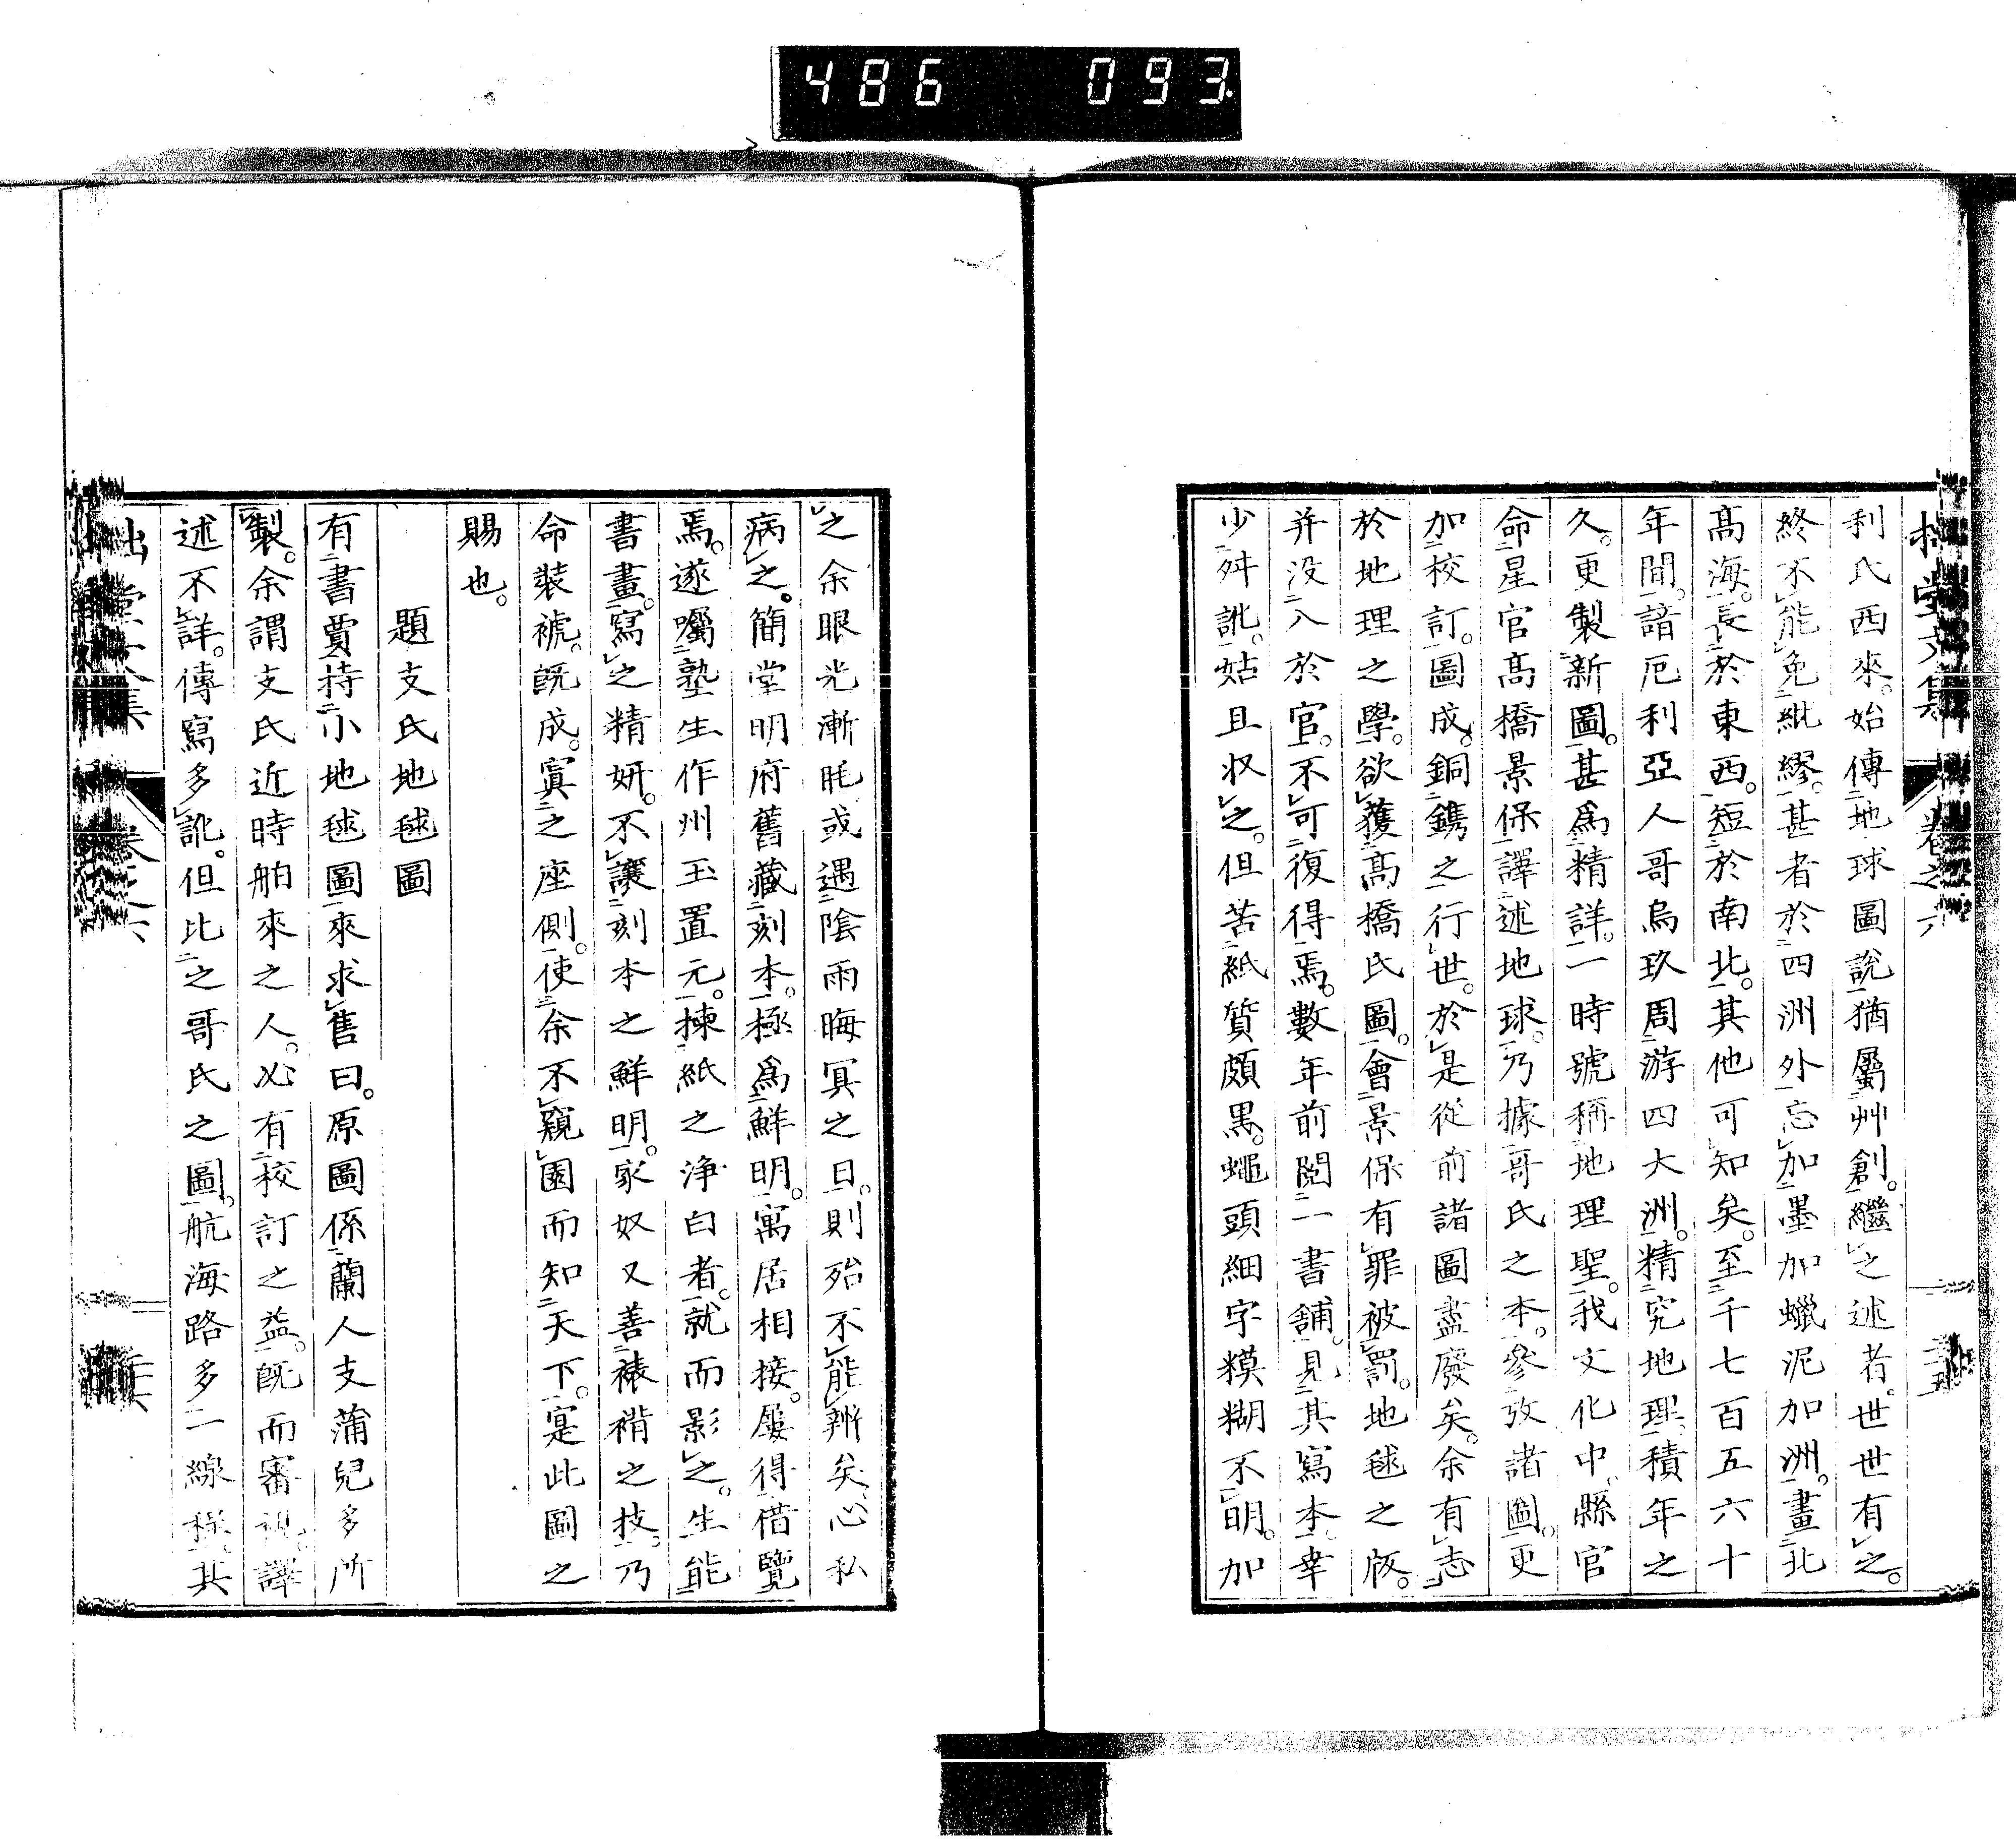 486 093
利氏西來。始傳地球圖說。猶屬艸創。繼之述者。世世有之。
終不能免紕繆。甚者於四洲外。忘加墨加蠟泥加洲。畫北
高海。長於東西。短於南北。其他可知矣。至千七百五六十
年間。諳厄利亞人哥烏玖周游四大洲。精究地理。積年之
久。更製新圖。甚爲精詳。一時號稱地理聖。我文化中。縣官
命星官高橋景保。譯述地球。乃據哥氏之本。參攷諸圖。更
加校訂。圖成。銅鐫之行世。於是從前諸圖盡廢矣。余有志
於地理之學。欲獲高橋氏圖。會景保有罪被罰。地毬之版。
并没入於官。不可復得焉。數年前閲一書舖。見其寫本。幸
少舛訛。姑且收之。但苦紙質頗黒。蠅頭細字糢糊不明。加
之余眼光漸眊或遇陰雨晦冥之日。則殆不能辨矣。心私
病之。簡堂明府舊藏刻本。極爲鮮明。寓居相接。屢得借覽
焉。遂囑塾生作州玉置元。揀紙之浄白者。就而影之。生能
書畫。寫之精妍。不讓刻本之鮮明。家奴又善裱褙之技。乃
命裝褫。既成。寘之座側。使余不窺園而知天下。寔此圖之
賜也。
題支氏地毬圖
有書賈持小地毬圖來求售曰。原圖係蘭人支蒲兒多所
製。余謂支氏近時舶來之人。必有校訂之益。既而審視。譯
述不詳。傳寫多訛。但比之哥氏之圖。航海路多一線程。其